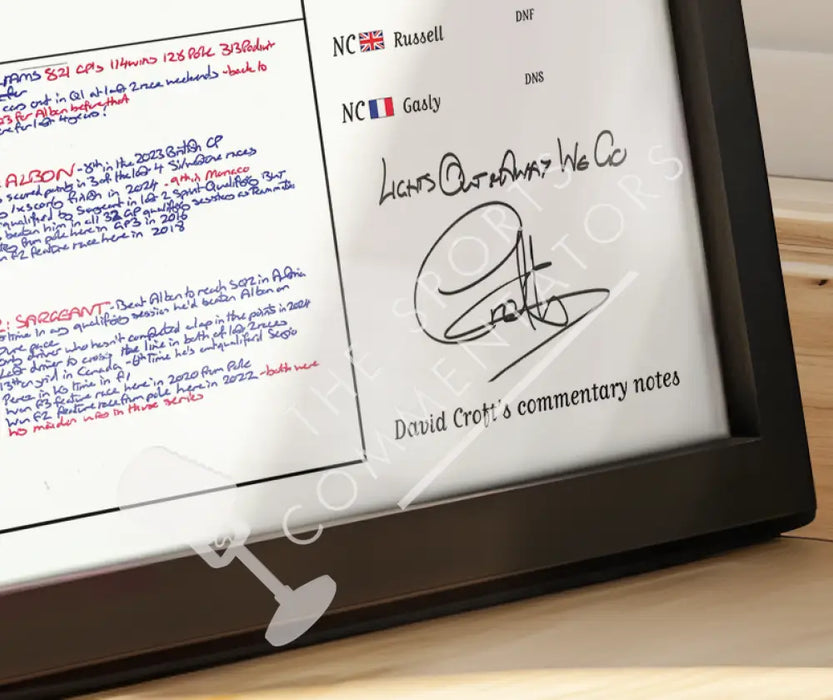 AMS 821 GPs 114 wins 128 Pole 313 Podium
cars out in Q1 at last 2 race weekends - back to
23 for Albon before that
ALBON - 8th in the 2023 British GP
scored points in 3 of the last 4 Silverstone races
in 2024 - 9th in Monaco
qualified by Sargeant in last 2 Sprint Qualifyings But
beaten him in all 32 GP qualifying sessions as teammates
from pole here in GP3 in 2016
F2 feature race here in 2018
: SARGEANT - Beat Albon to reach SQ2 in Austria
time in any qualifying session he'd beaten Albon on
pure pace
only driver who hasn't completed a lap in the points in 2024
last driver to cross the line in both of last 2 races
13th on grid in Canada - 6th Time he's outqualified Sergio
Perez in his time in F1
Won F3 feature race here in 2020 from Pole
Won F2 Feature race from pole here in 2022 - both were
his maiden wins in those series
NC Russell DNF
NC Gasly DNS
LIGHTS OUT AND AWAY WE GO
Crofty
David Croft's commentary notes
THE SPORTS
COMMENTATORS